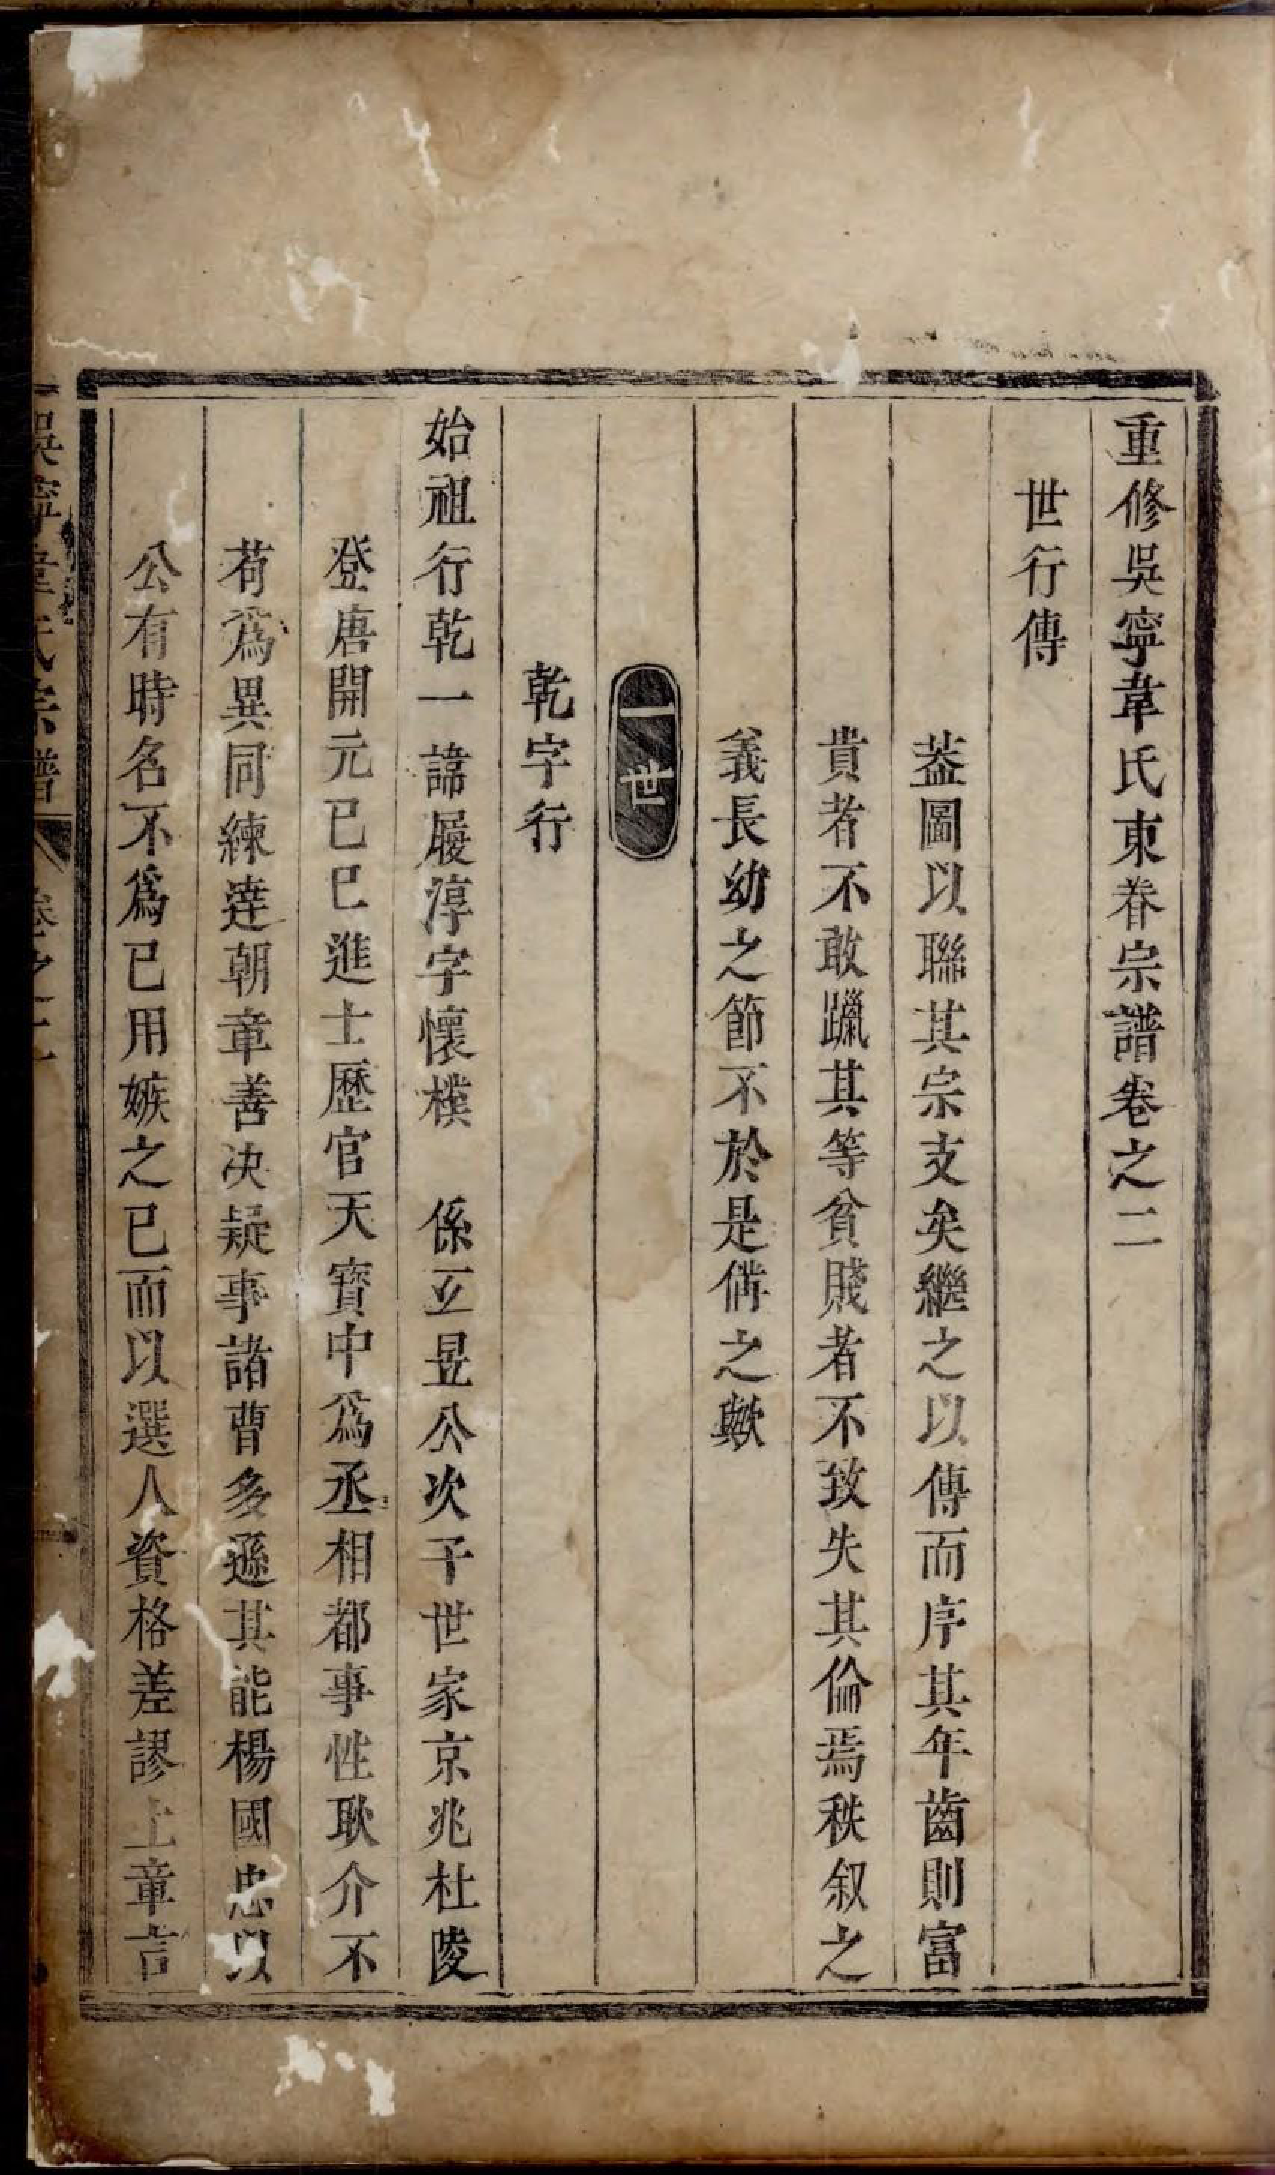 重修吳寧韋氏東眷宗譜卷之二
世行傳
葢圖以聯其宗支矣繼之以傳而序其年齒則富
貴者不敢躐其等貧賤者不致失其倫焉秩叙之
義長幼之節不於是偹之歟
一世
乾字行
始祖行乾一諱履淳字懷樸 係玄昱公次子世家京兆杜陵
登唐開元已巳進士歷官天寶中爲丞相都事性耿介不
苟爲異同練達朝章善决疑事諸曹多遜其能楊國忠以
公有時名不爲已用嫉之已而以選人資格差謬上章言
吳寧韋氏宗譜 卷之二